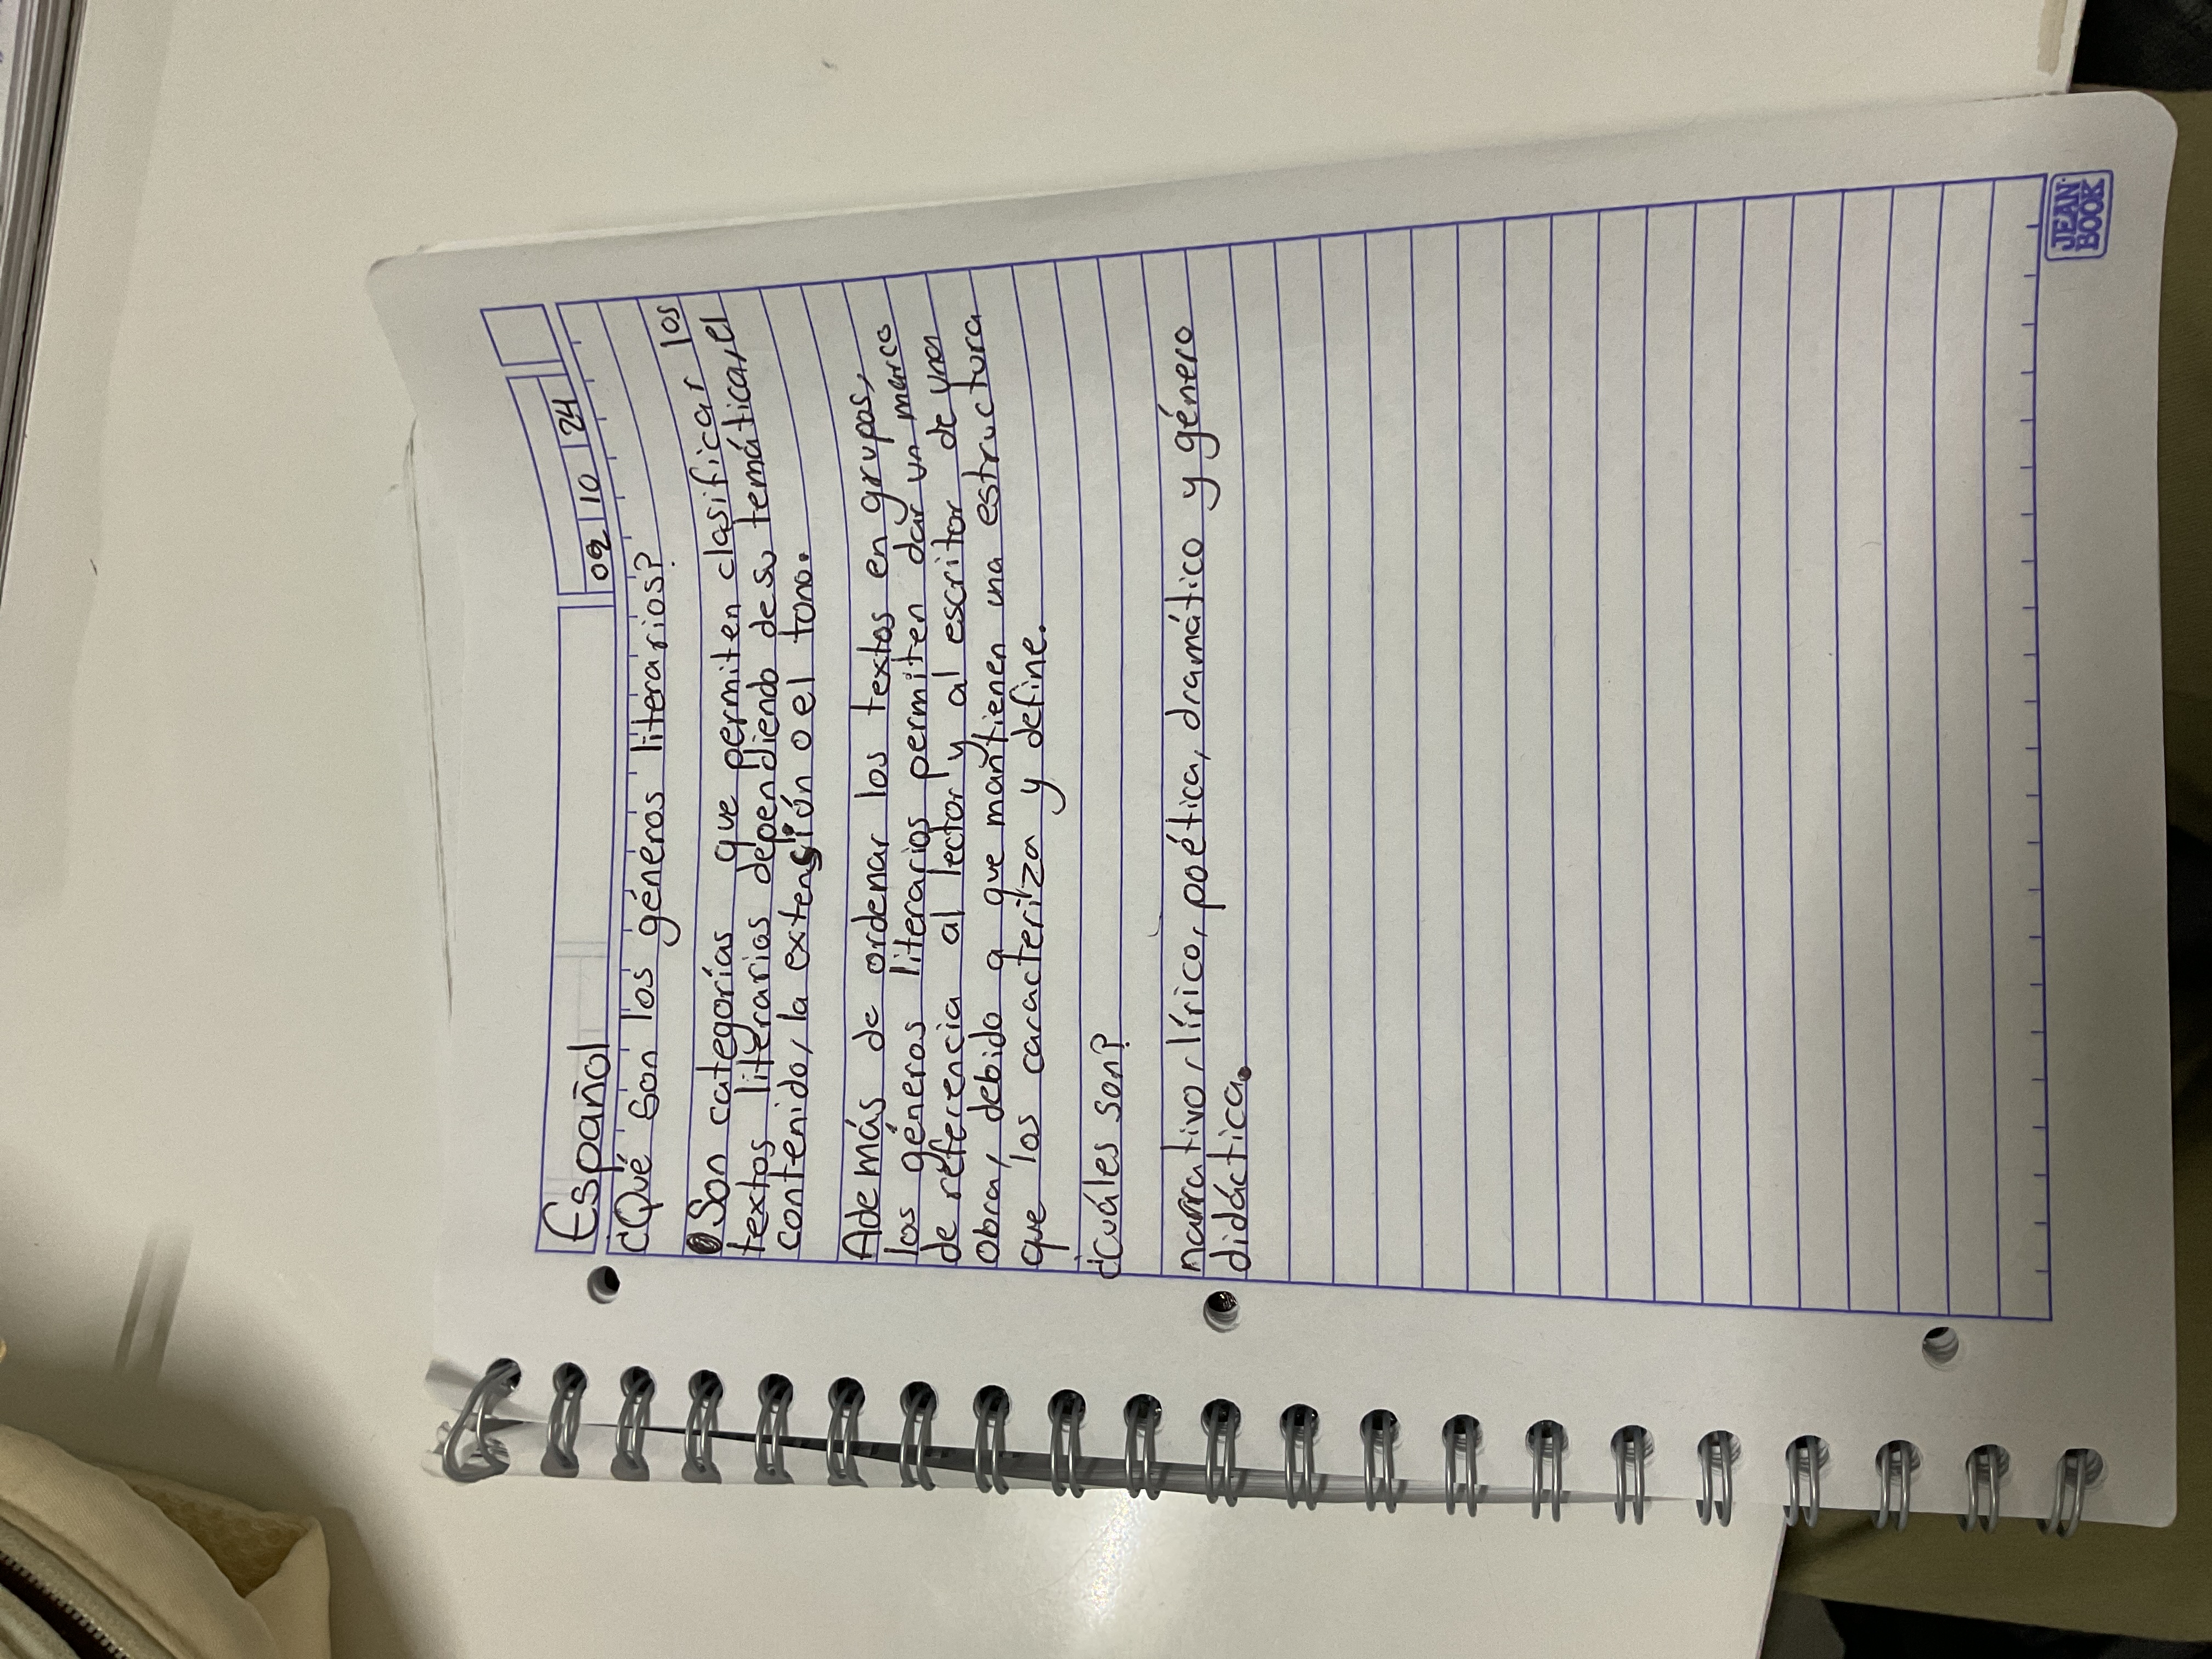 Español
09 10 24
¿Qué son los géneros literarios?
Son categorías que permiten clasificar los
textos literarios dependiendo de su temática, el
contenido, la extensión o el tono.
Además de ordenar los textos en grupos,
los géneros literarios permiten dar un marco
de referencia al lector y al escritor de una
obra, debido a que mantienen una estructura
que los caracteriza y define.
¿cuáles son?
narrativo, lírico, poética, dramático y género
didáctica.
JEAN
BOOK